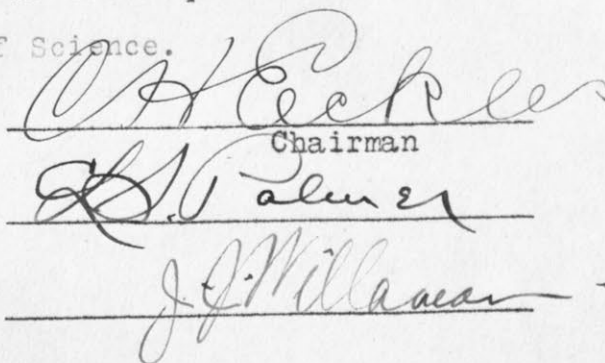 f Science.
C H Eckles
Chairman
L. S. Palmer
J. J. Willaman